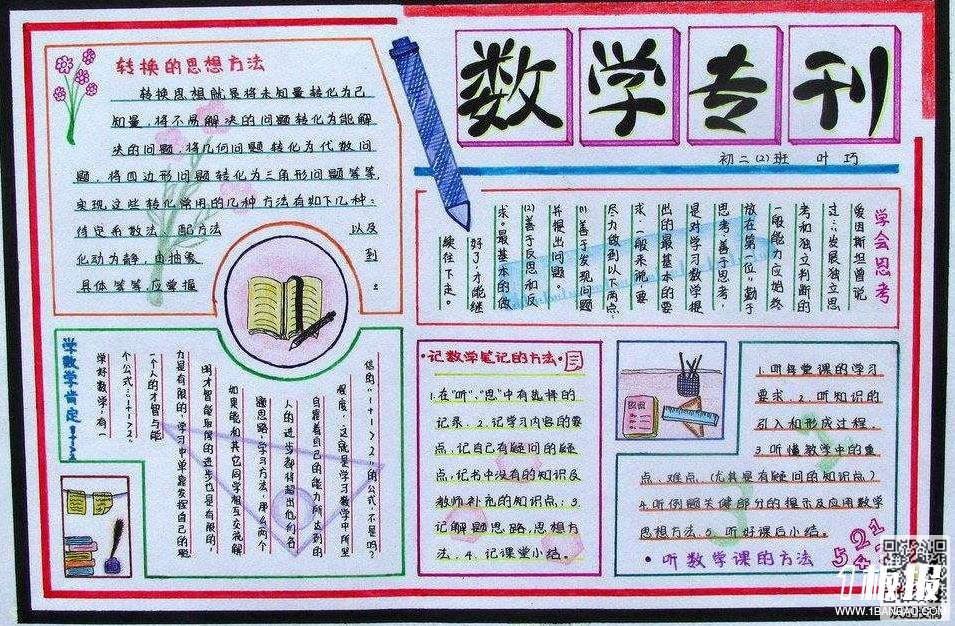 数学专刊
初二(2)班 叶巧
转换的思想方法
转换思想就是将未知量转化为已
知量,将不易解决的问题转化为能解
决的问题,将几何问题转化为代数问
题,将四边形问题转化为三角形问题等等,
实现这些转化常用的几种方法有如下几种:
待定系数法、配方法 以及
化动为静,由抽象 到
具体等等,应掌握。
学会思考
爱因斯坦曾说
过:“发展独立思
考和独立判断的
一般能力应始终
放在第一位”勤于
思考,善于思考,
是对学习数学提
出的最基本的要
求。一般来说,要
尽力做到以下两点
(1)善于发现问题
并提出问题。
(2)善于反思和反
求。最基本的做
好了,才能继
续往下走。
学数学肯定1+1>2
学好数学,有一
个公式:“1+1>2”
一个人的才智与能
力是有限的,学习中单靠发挥自己的聪
明才智能取得的进步也是有限的,
如果能和其它同学相互交流解
题思路,学习方法,那么两个
人的进步都将超出他们各
自靠着自己的能力所达到的
程度,这就是学习数学中所坚
信的“1+1>2”的公式,不是吗?
·记数学笔记的方法·
1.在“听”、“思”中有选择的
记录。2.记学习内容的要
点,记自己有疑问的疑
点,记书中没有的知识及
教师补充的知识点;3.
记解题思路,思想方
法。4.记课堂小结。
1.听每堂课的学习
要求。2.听知识的
引入和形成过程。
3.听懂教学中的重
点、难点,(尤其是有疑问的知识点)
4.听例题关健部分的提示及应用数学
思想方法。5.听好课后小结。
·听数学课的方法
1板报
WWW.1BANBAO.COM